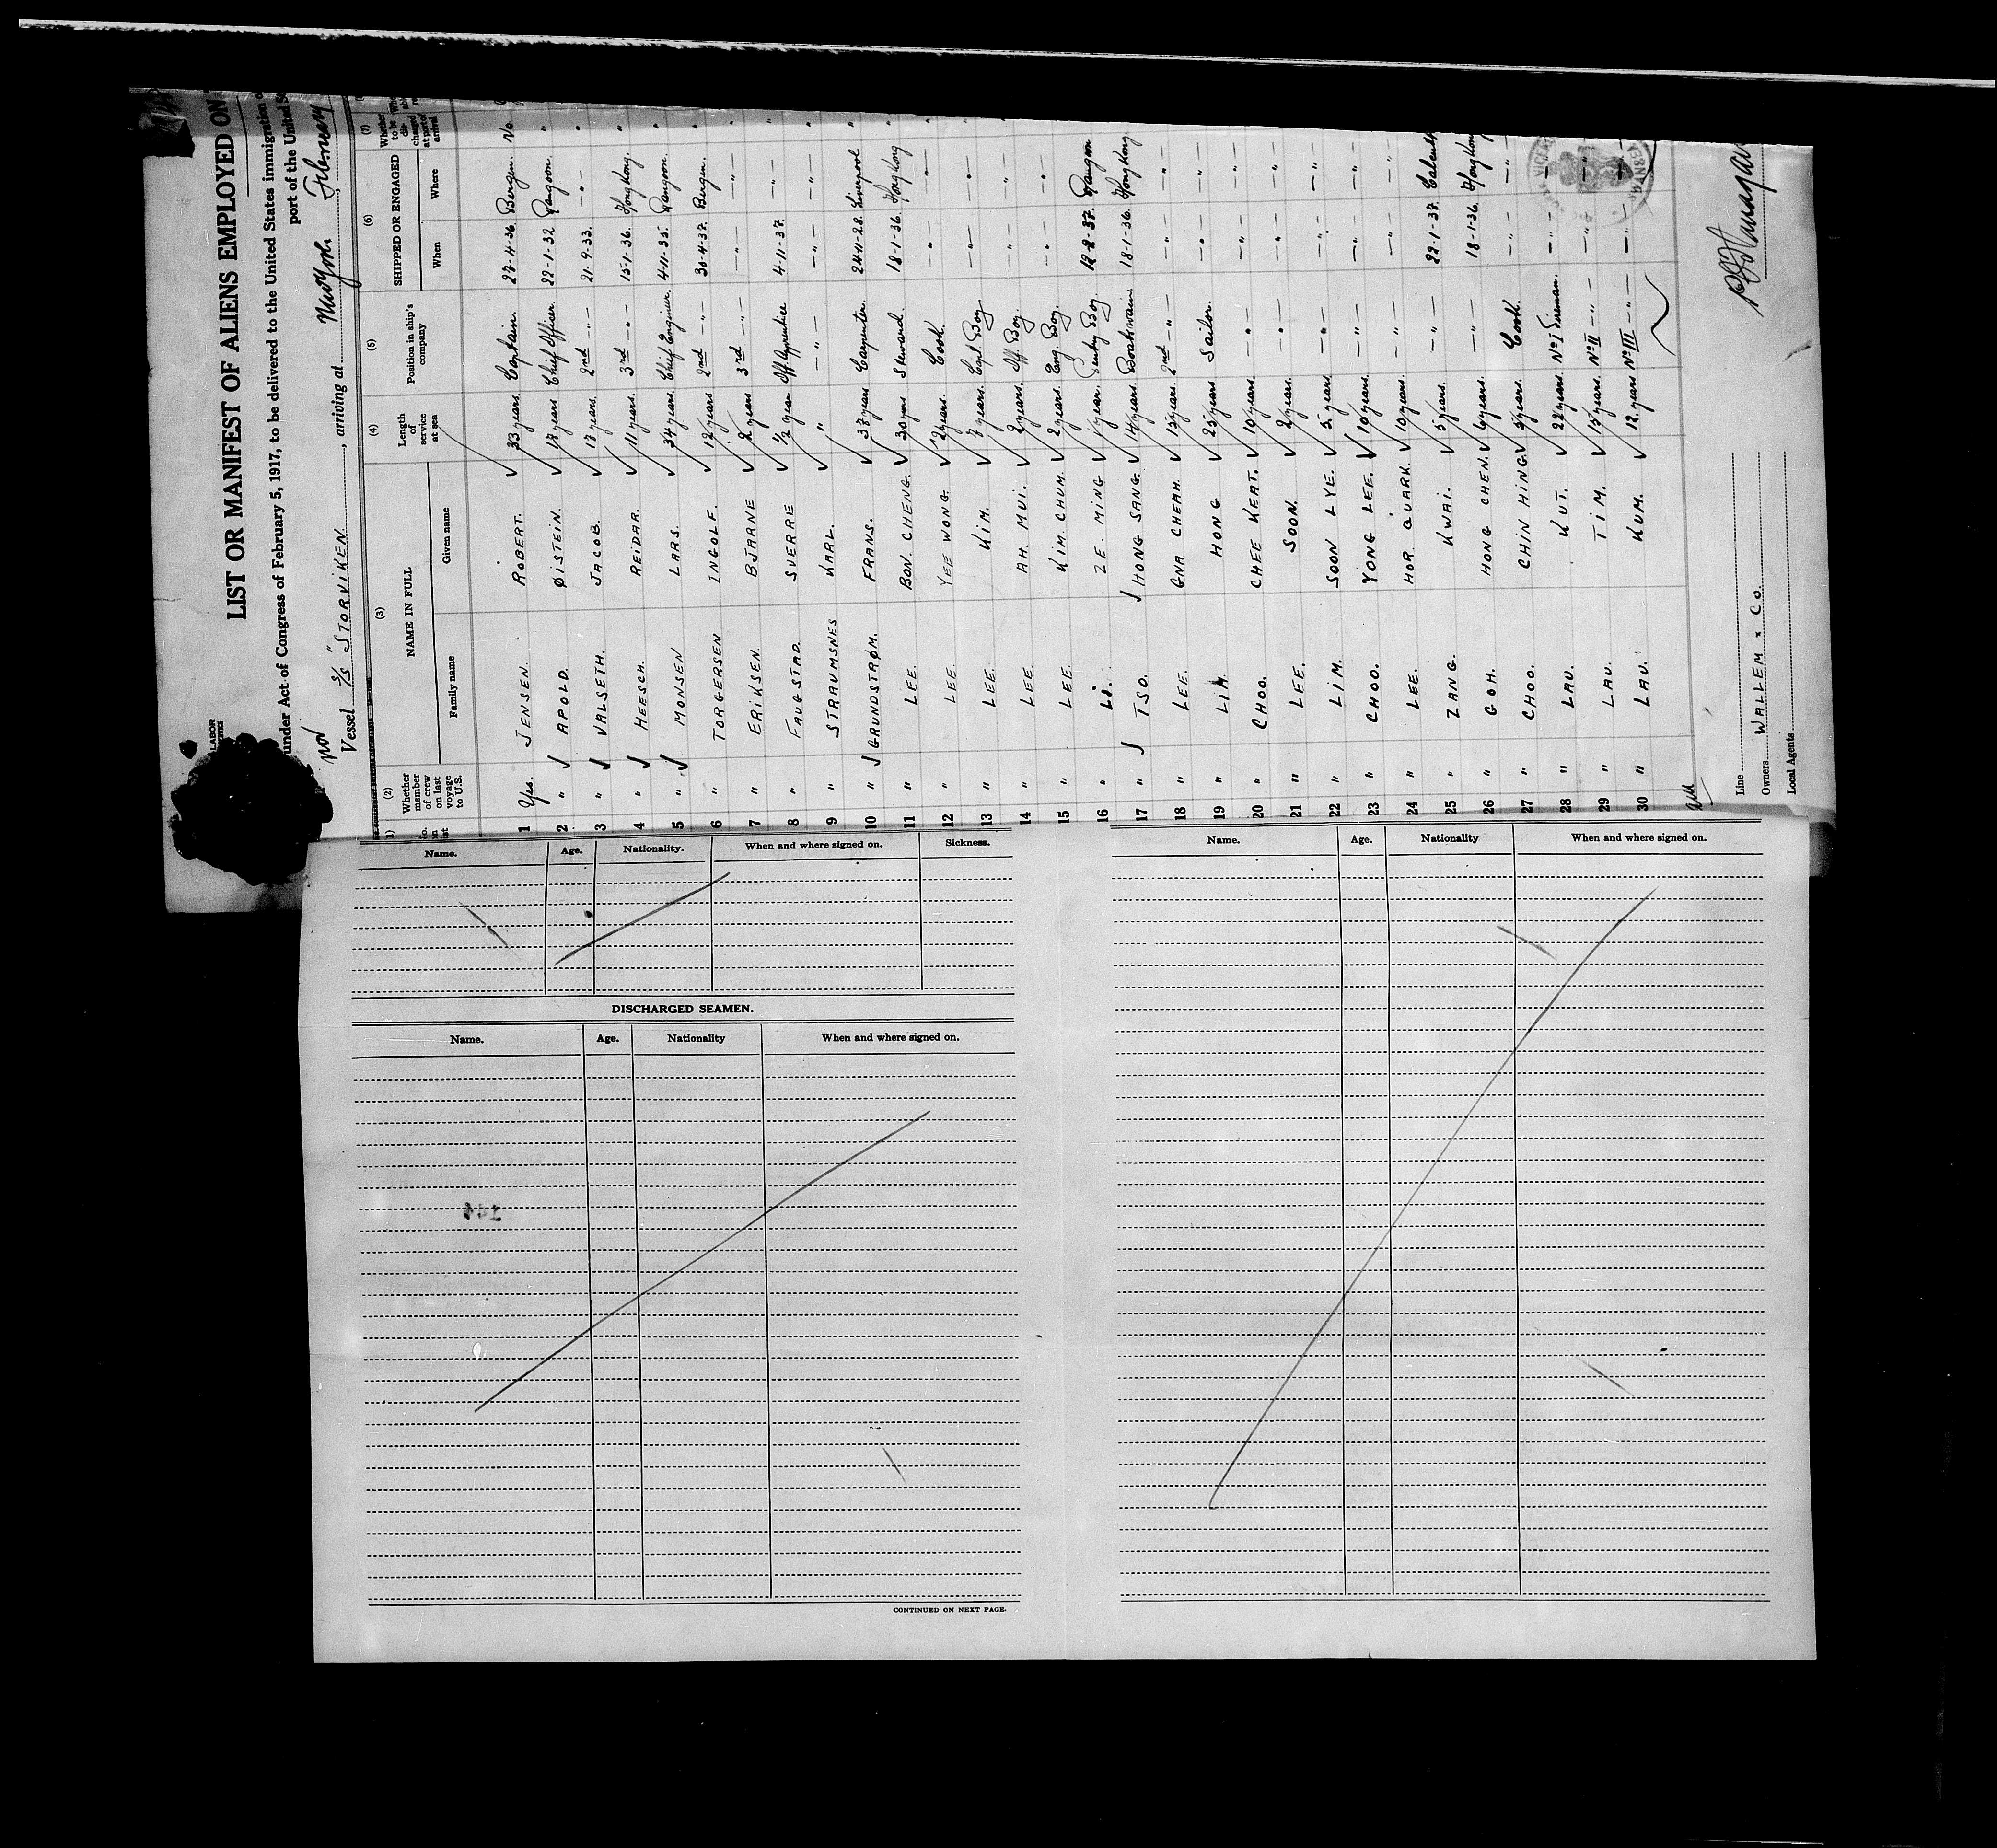 LIST OR MANIFEST OF ALIENS EMPLOYED ON
under Act of Congress of February 5, 1917, to be delivered to the United States immigration
port of the United
Vessel S/S "STORVIKEN", arriving at New York, February
LABOR
(2) (3) (4) (5) (6) (7)
Whether member of crew on last voyage to U.S. NAME IN FULL Length of service at sea Position in ship's company SHIPPED OR ENGAGED Whether to be discharged at port of arrival
Family name Given name When Where
1 Yes. JENSEN. ROBERT. 33 years. Captain. 27-4-36. Bergen. No
2 " APOLD. ØISTEIN. 17 years Chief Officer. 22-1-32 Rangoon. "
3 " VALSETH. JACOB. 17 years. 2nd -"- 21-9-33. -"- "
4 " HEESCH. REIDAR. 11 years. 3rd -"- 15-1-36. Hongkong. "
5 " MONSEN LARS. 34 years. Chief Engineer. 4-11-35. Rangoon. "
6 " TORGERSEN INGOLF. 12 years 2nd -"- 30-4-37. Bergen. "
7 " ERIKSEN. BJARNE 2 years 3rd -"- -"- -"- "
8 " FAUGSTAD. SVERRE ½ year Off. Apprentice 4-11-37. -"- "
9 " STRAUMSNES KARL. " -"- -"- -"- "
10 " GRUNDSTRØM. FRANS. 37 years Carpenter. 24-11-28. Liverpool "
11 " LEE. BON. CHENG. 30 years Steward. 18-1-36. Hongkong "
12 " LEE. YEE WONG. 2 years. Cook. -"- -"- "
13 " LEE. KIM. 7 years. Capt. Boy -"- -"- "
14 " LEE. AH. MUI. 2 years. Off. Boy -"- -"- "
15 " LEE. KIM. CHUM. 2 years. Eng. Boy. -"- -"- "
16 " LI. ZE. MING 1 year. Pentry Boy. 12-8-37. Rangoon "
17 " TSO. HONG SANG. 14 years. Boatswain. 18-1-36. Hongkong. "
18 " LEE. GNA CHEAH. 15 years. 2nd -"- -"- -"- "
19 " LIM. HONG 25 years Sailor. -"- -"- "
20 " CHOO. CHEE KEAT. 10 years. -"- -"- -"- "
21 " LEE. SOON. 2 years. -"- -"- -"- "
22 " LIM. SOON LYE. 5 years. -"- -"- -"- "
23 " CHOO. YONG LEE. 10 years. -"- -"- -"- "
24 " LEE. HOR QUARK. 10 years. -"- -"- -"-
25 " ZANG. KWAI. 5 years. -"- 22-1-37.
26 " GOH. HONG CHEN. 6 years. -"- 18-1-36.
27 " CHOO. CHIN HING. 5 years. Cook. -"- -"-
28 " LAU. KUT. 22 years. No I Fireman. -"- -"-
29 " LAU. TIM. 15 years. No II -"- -"- -"-
30 " LAU. KUM. 12 years No III -"- -"- -"-
Line
Owners WALLEM & Co.
Local Agents
Name. Age. Nationality. When and where signed on. Sickness.
DISCHARGED SEAMEN.
Name. Age. Nationality When and where signed on.
CONTINUED ON NEXT PAGE.
Name. Age. Nationality When and where signed on.